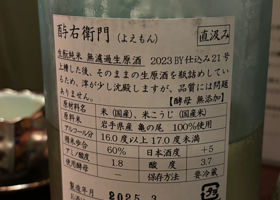 酉与右衛門（よえもん） 直汲み
生酛純米 無濾過生原酒 2023BY仕込み21号
上槽した後、そのままの生原酒を瓶詰めしている
ため、滓が少し沈殿しますが、品質には問題
ありません。 【酵母 無添加】
原材料名 米（国産）、米こうじ（国産米）
原料米 岩手県産 亀の尾 100%使用
アルコール分 16.0度以上17.0度未満
精米歩合 60% 日本酒度 +5
アミノ酸度 1.8 酸度 3.7
使用酵母 — 保存方法 要冷蔵
製造年月 2025.3